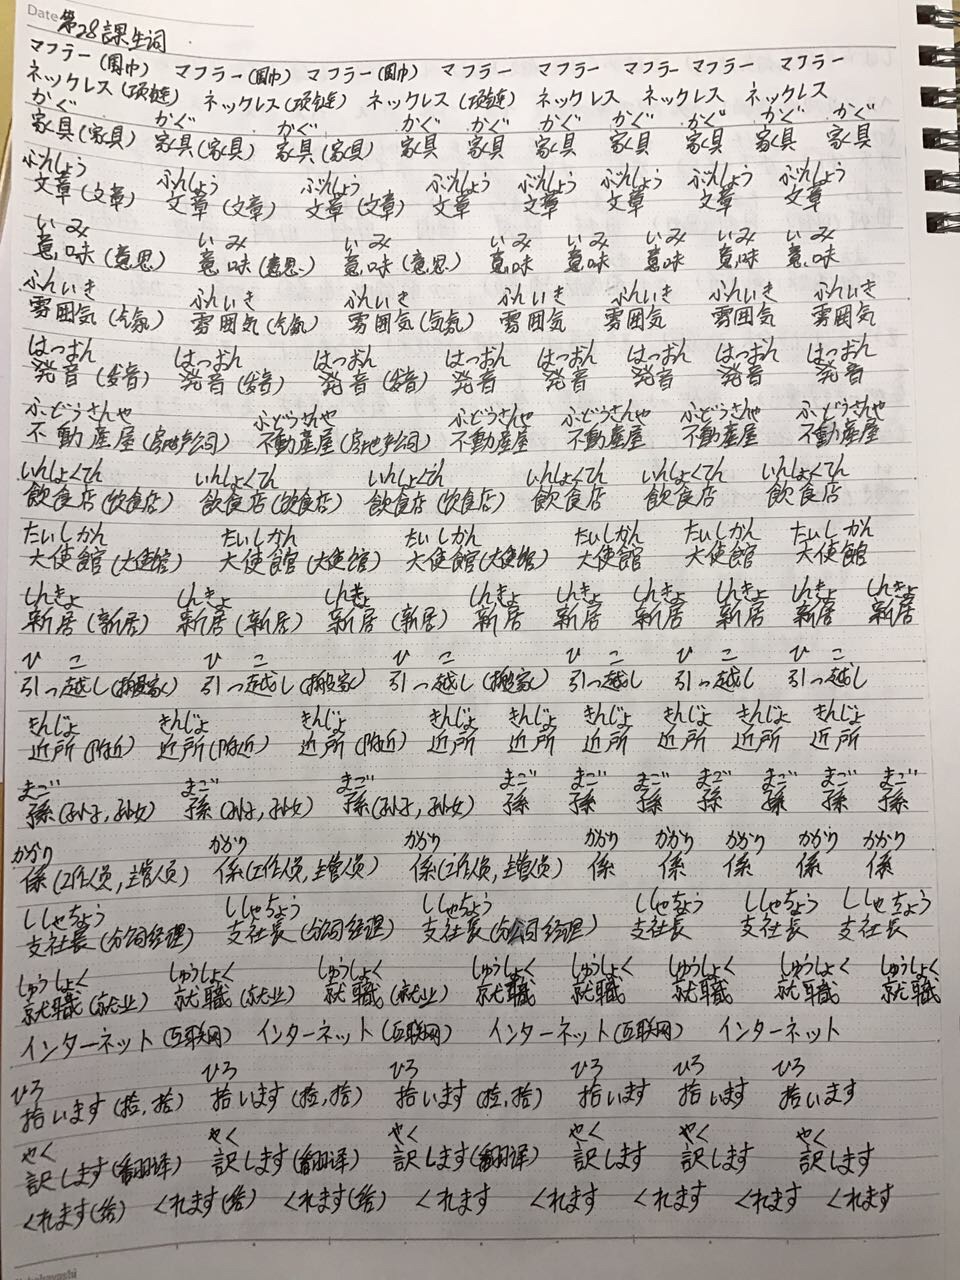 Date 第28課生词
マフラー(围巾) マフラー(围巾) マフラー(围巾) マフラー マフラー マフラー マフラー マフラー
ネックレス(项链) ネックレス(项链) ネックレス(项链) ネックレス ネックレス ネックレス
かぐ かぐ かぐ かぐ かぐ かぐ かぐ かぐ かぐ かぐ
家具(家具) 家具(家具) 家具(家具) 家具 家具 家具 家具 家具 家具 家具
ぶんしょう ぶんしょう ぶんしょう ぶんしょう ぶんしょう ぶんしょう ぶんしょう ぶんしょう
文章(文章) 文章(文章) 文章(文章) 文章 文章 文章 文章 文章
いみ いみ いみ いみ いみ いみ いみ いみ
意味(意思) 意味(意思) 意味(意思) 意味 意味 意味 意味 意味
ふんいき ふんいき ふんいき ふんいき ふんいき ふんいき ふんいき
雰囲気(气氛) 雰囲気(气氛) 雰囲気(气氛) 雰囲気 雰囲気 雰囲気 雰囲気
はつおん はつおん はつおん はつおん はつおん はつおん はつおん はつおん
発音(发音) 発音(发音) 発音(发音) 発音 発音 発音 発音 発音
ふどうさんや ふどうさんや ふどうさんや ふどうさんや ふどうさんや ふどうさんや
不動産屋(房地产公司) 不動産屋(房地产公司) 不動産屋 不動産屋 不動産屋 不動産屋
いんしょくてん いんしょくてん いんしょくてん いんしょくてん いんしょくてん いんしょくてん
飲食店(饮食店) 飲食店(饮食店) 飲食店(饮食店) 飲食店 飲食店 飲食店
たいしかん たいしかん たいしかん たいしかん たいしかん たいしかん
大使館(大使馆) 大使館(大使馆) 大使館(大使馆) 大使館 大使館 大使館
しんきょ しんきょ しんきょ しんきょ しんきょ しんきょ しんきょ しんきょ しんきょ
新居(新居) 新居(新居) 新居(新居) 新居 新居 新居 新居 新居 新居
ひ こ ひ こ ひ こ ひ こ ひ こ ひ こ
引っ越し(搬家) 引っ越し(搬家) 引っ越し(搬家) 引っ越し 引っ越し 引っ越し
きんじょ きんじょ きんじょ きんじょ きんじょ きんじょ きんじょ きんじょ きんじょ
近所(附近) 近所(附近) 近所(附近) 近所 近所 近所 近所 近所 近所
まご まご まご まご まご まご まご まご まご まご
孫(孙子,孙女) 孫(孙子,孙女) 孫(孙子,孙女) 孫 孫 孫 孫 孫 孫 孫
かかり かかり かかり かかり かかり かかり かかり かかり
係(工作人员,主管人员) 係(工作人员,主管人员) 係(工作人员,主管人员) 係 係 係 係 係
ししゃちょう ししゃちょう ししゃちょう ししゃちょう ししゃちょう ししゃちょう
支社長(分公司经理) 支社長(分公司经理) 支社長(分公司经理) 支社長 支社長 支社長
しゅうしょく しゅうしょく しゅうしょく しゅうしょく しゅうしょく しゅうしょく しゅうしょく しゅうしょく
就職(就业) 就職(就业) 就職(就业) 就職 就職 就職 就職 就職
インターネット(互联网) インターネット(互联网) インターネット(互联网) インターネット
ひろ ひろ ひろ ひろ ひろ ひろ
拾います(捡,拾) 拾います(捡,拾) 拾います(捡,拾) 拾います 拾います 拾います
やく やく やく やく やく やく
訳します(翻译) 訳します(翻译) 訳します(翻译) 訳します 訳します 訳します
くれます(给) くれます(给) くれます(给) くれます くれます くれます くれます くれます